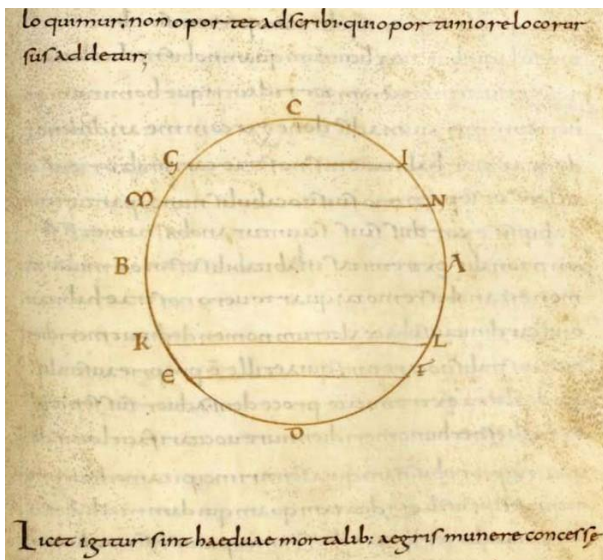 loquimur; non oportet adscribi. qui oportuniore loco rur
sus addetur;
C
G I
M N
B A
K L
E F
D
Licet igitur sint hae duae mortalib: aegris munere concesse